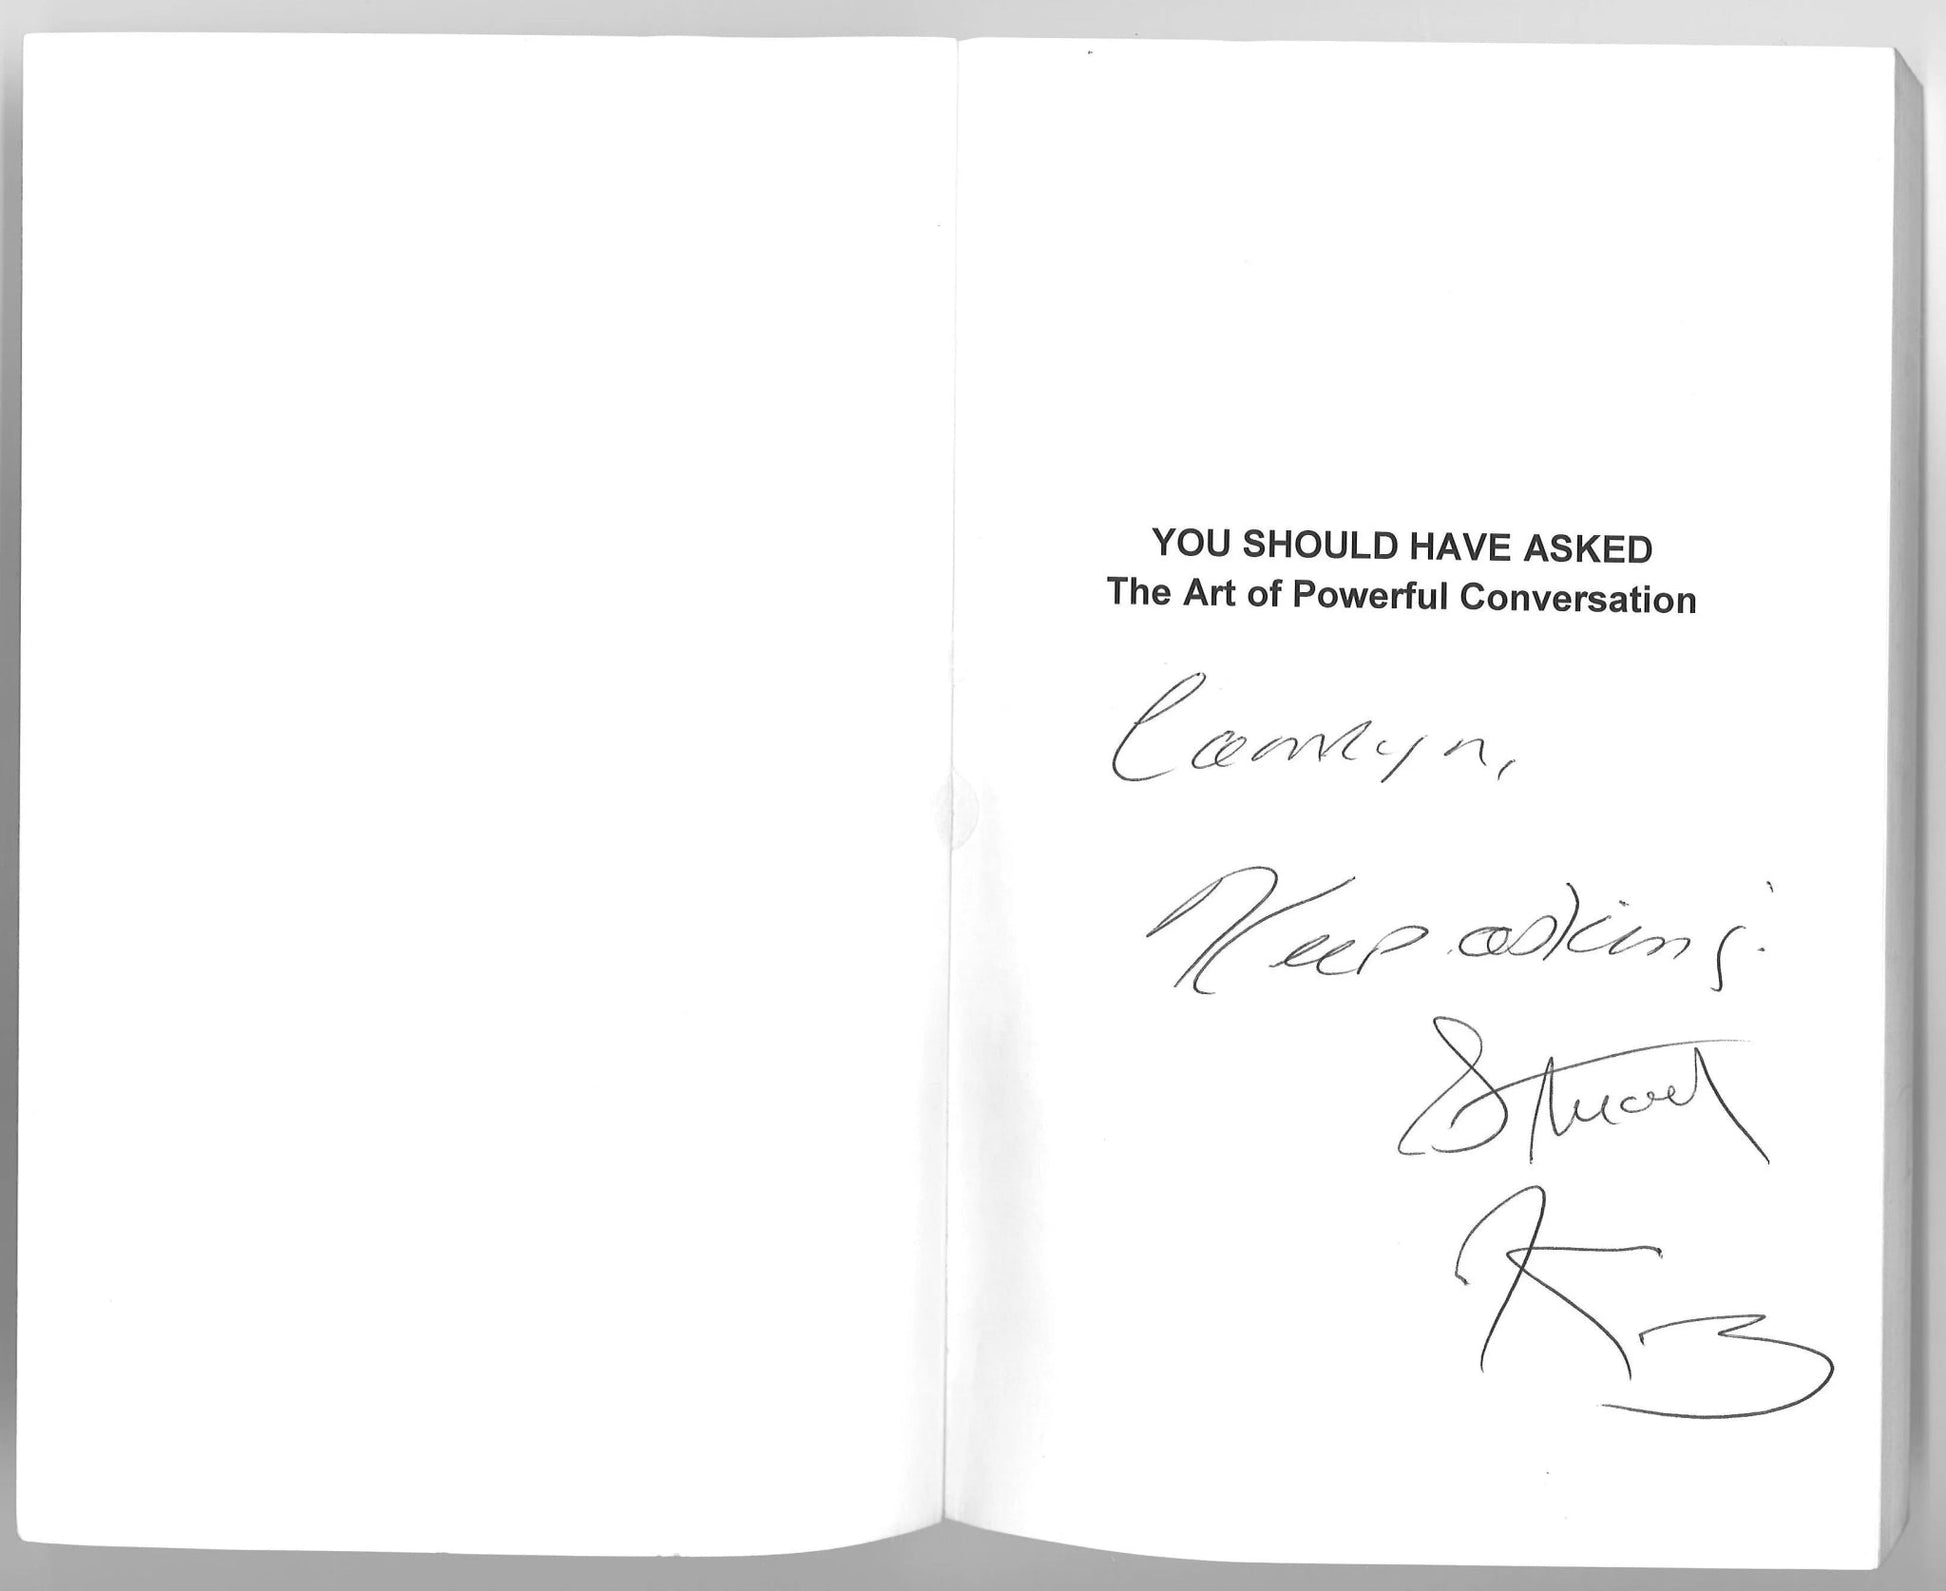 YOU SHOULD HAVE ASKED
The Art of Powerful Conversation
Keep asking!
Stuart